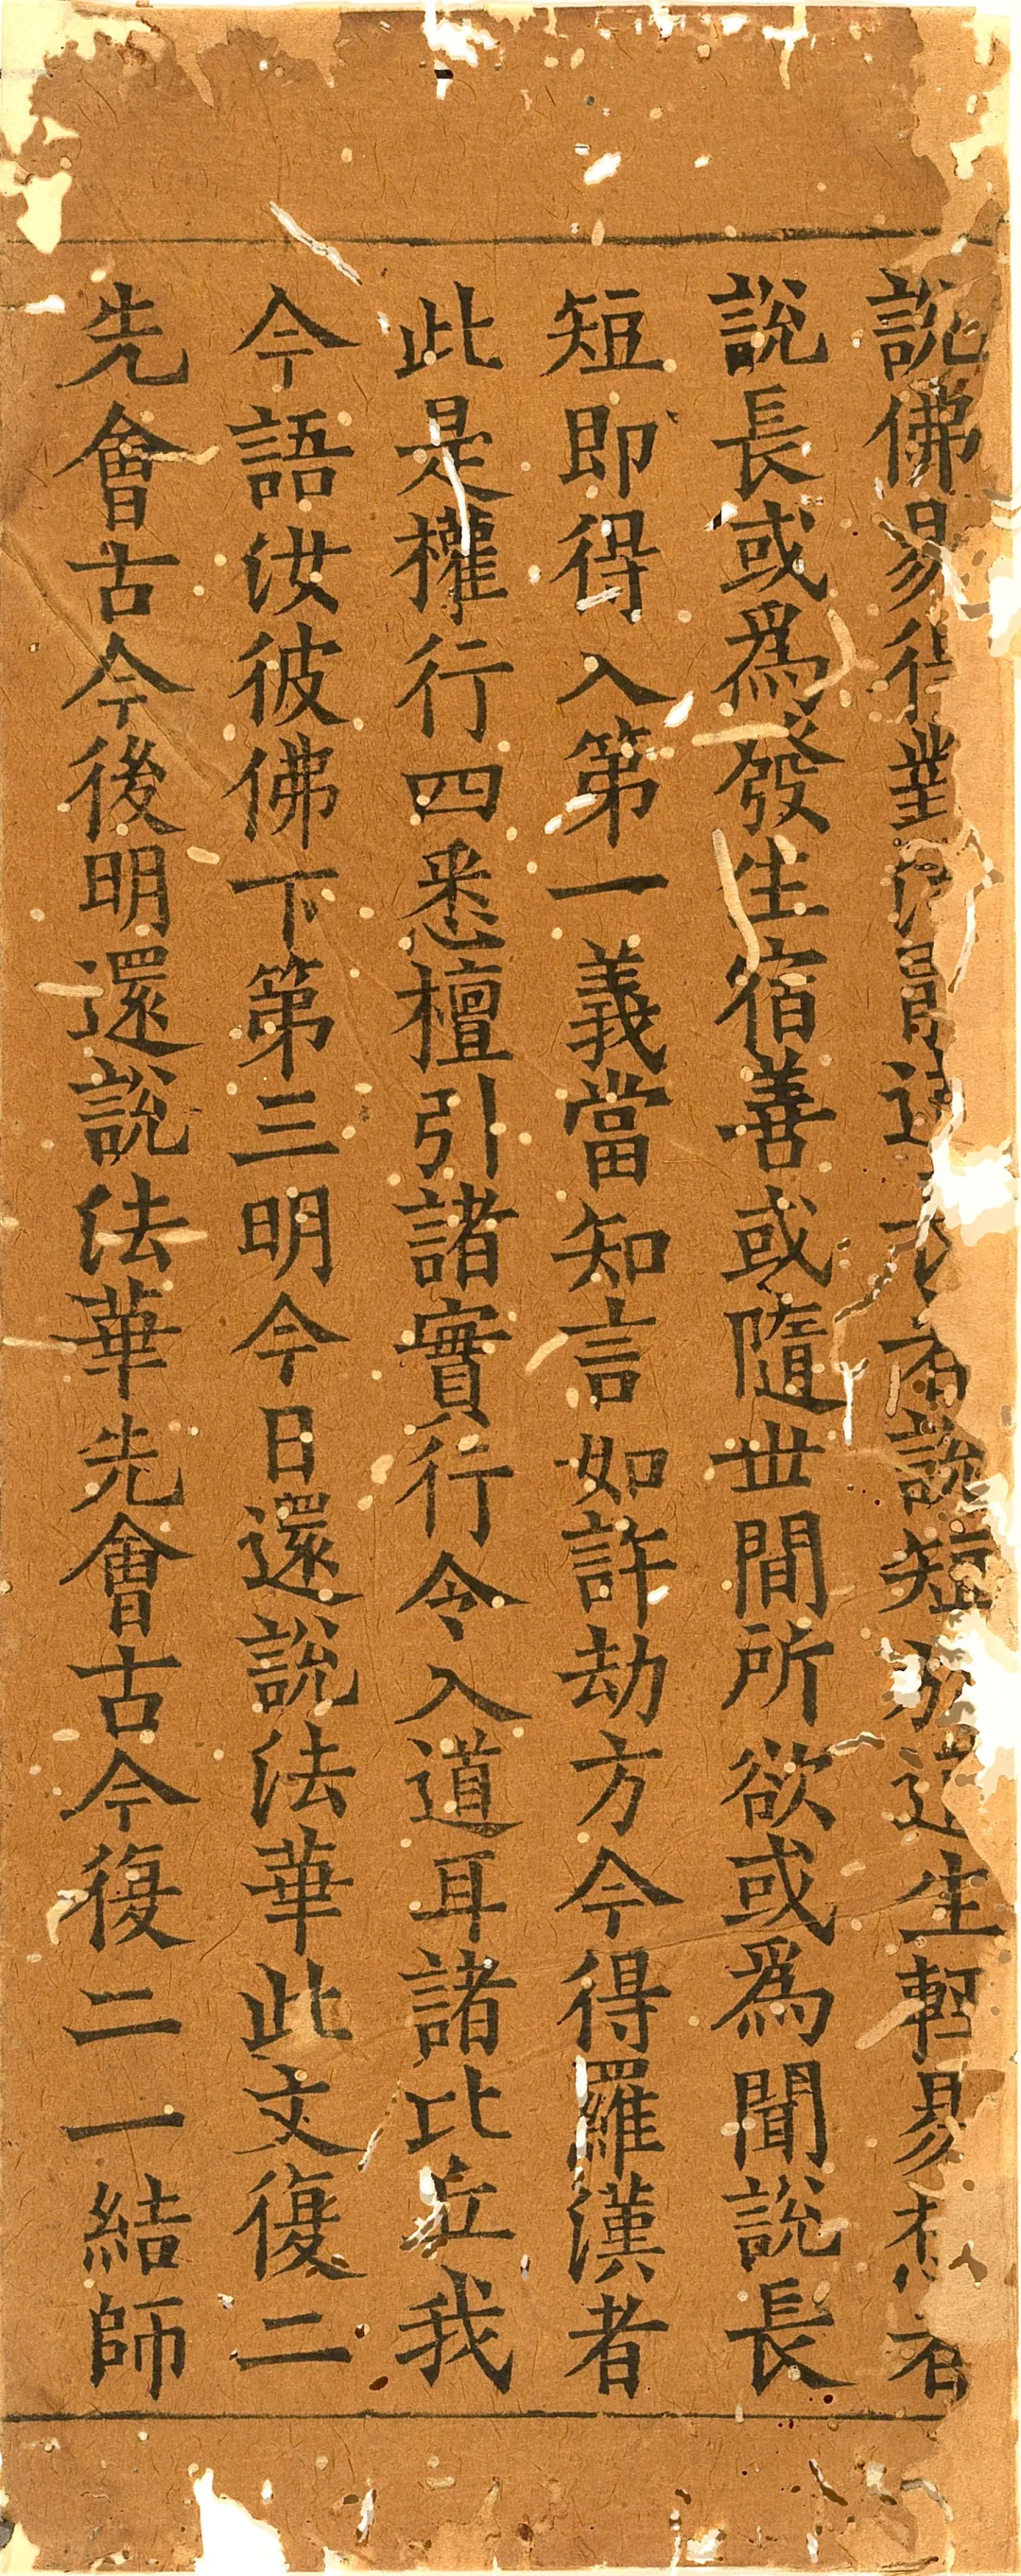 說佛易得說短生輕易者
說長或爲發生宿善或隨世間所欲或爲聞說長
短即得入第一義當知言如許劫方今得羅漢者
此是權行四悉檀引諸實行令入道耳諸比丘我
今語汝彼佛下第三明今日還說法華此文復二
先會古今後明還說法華先會古今復二一結師